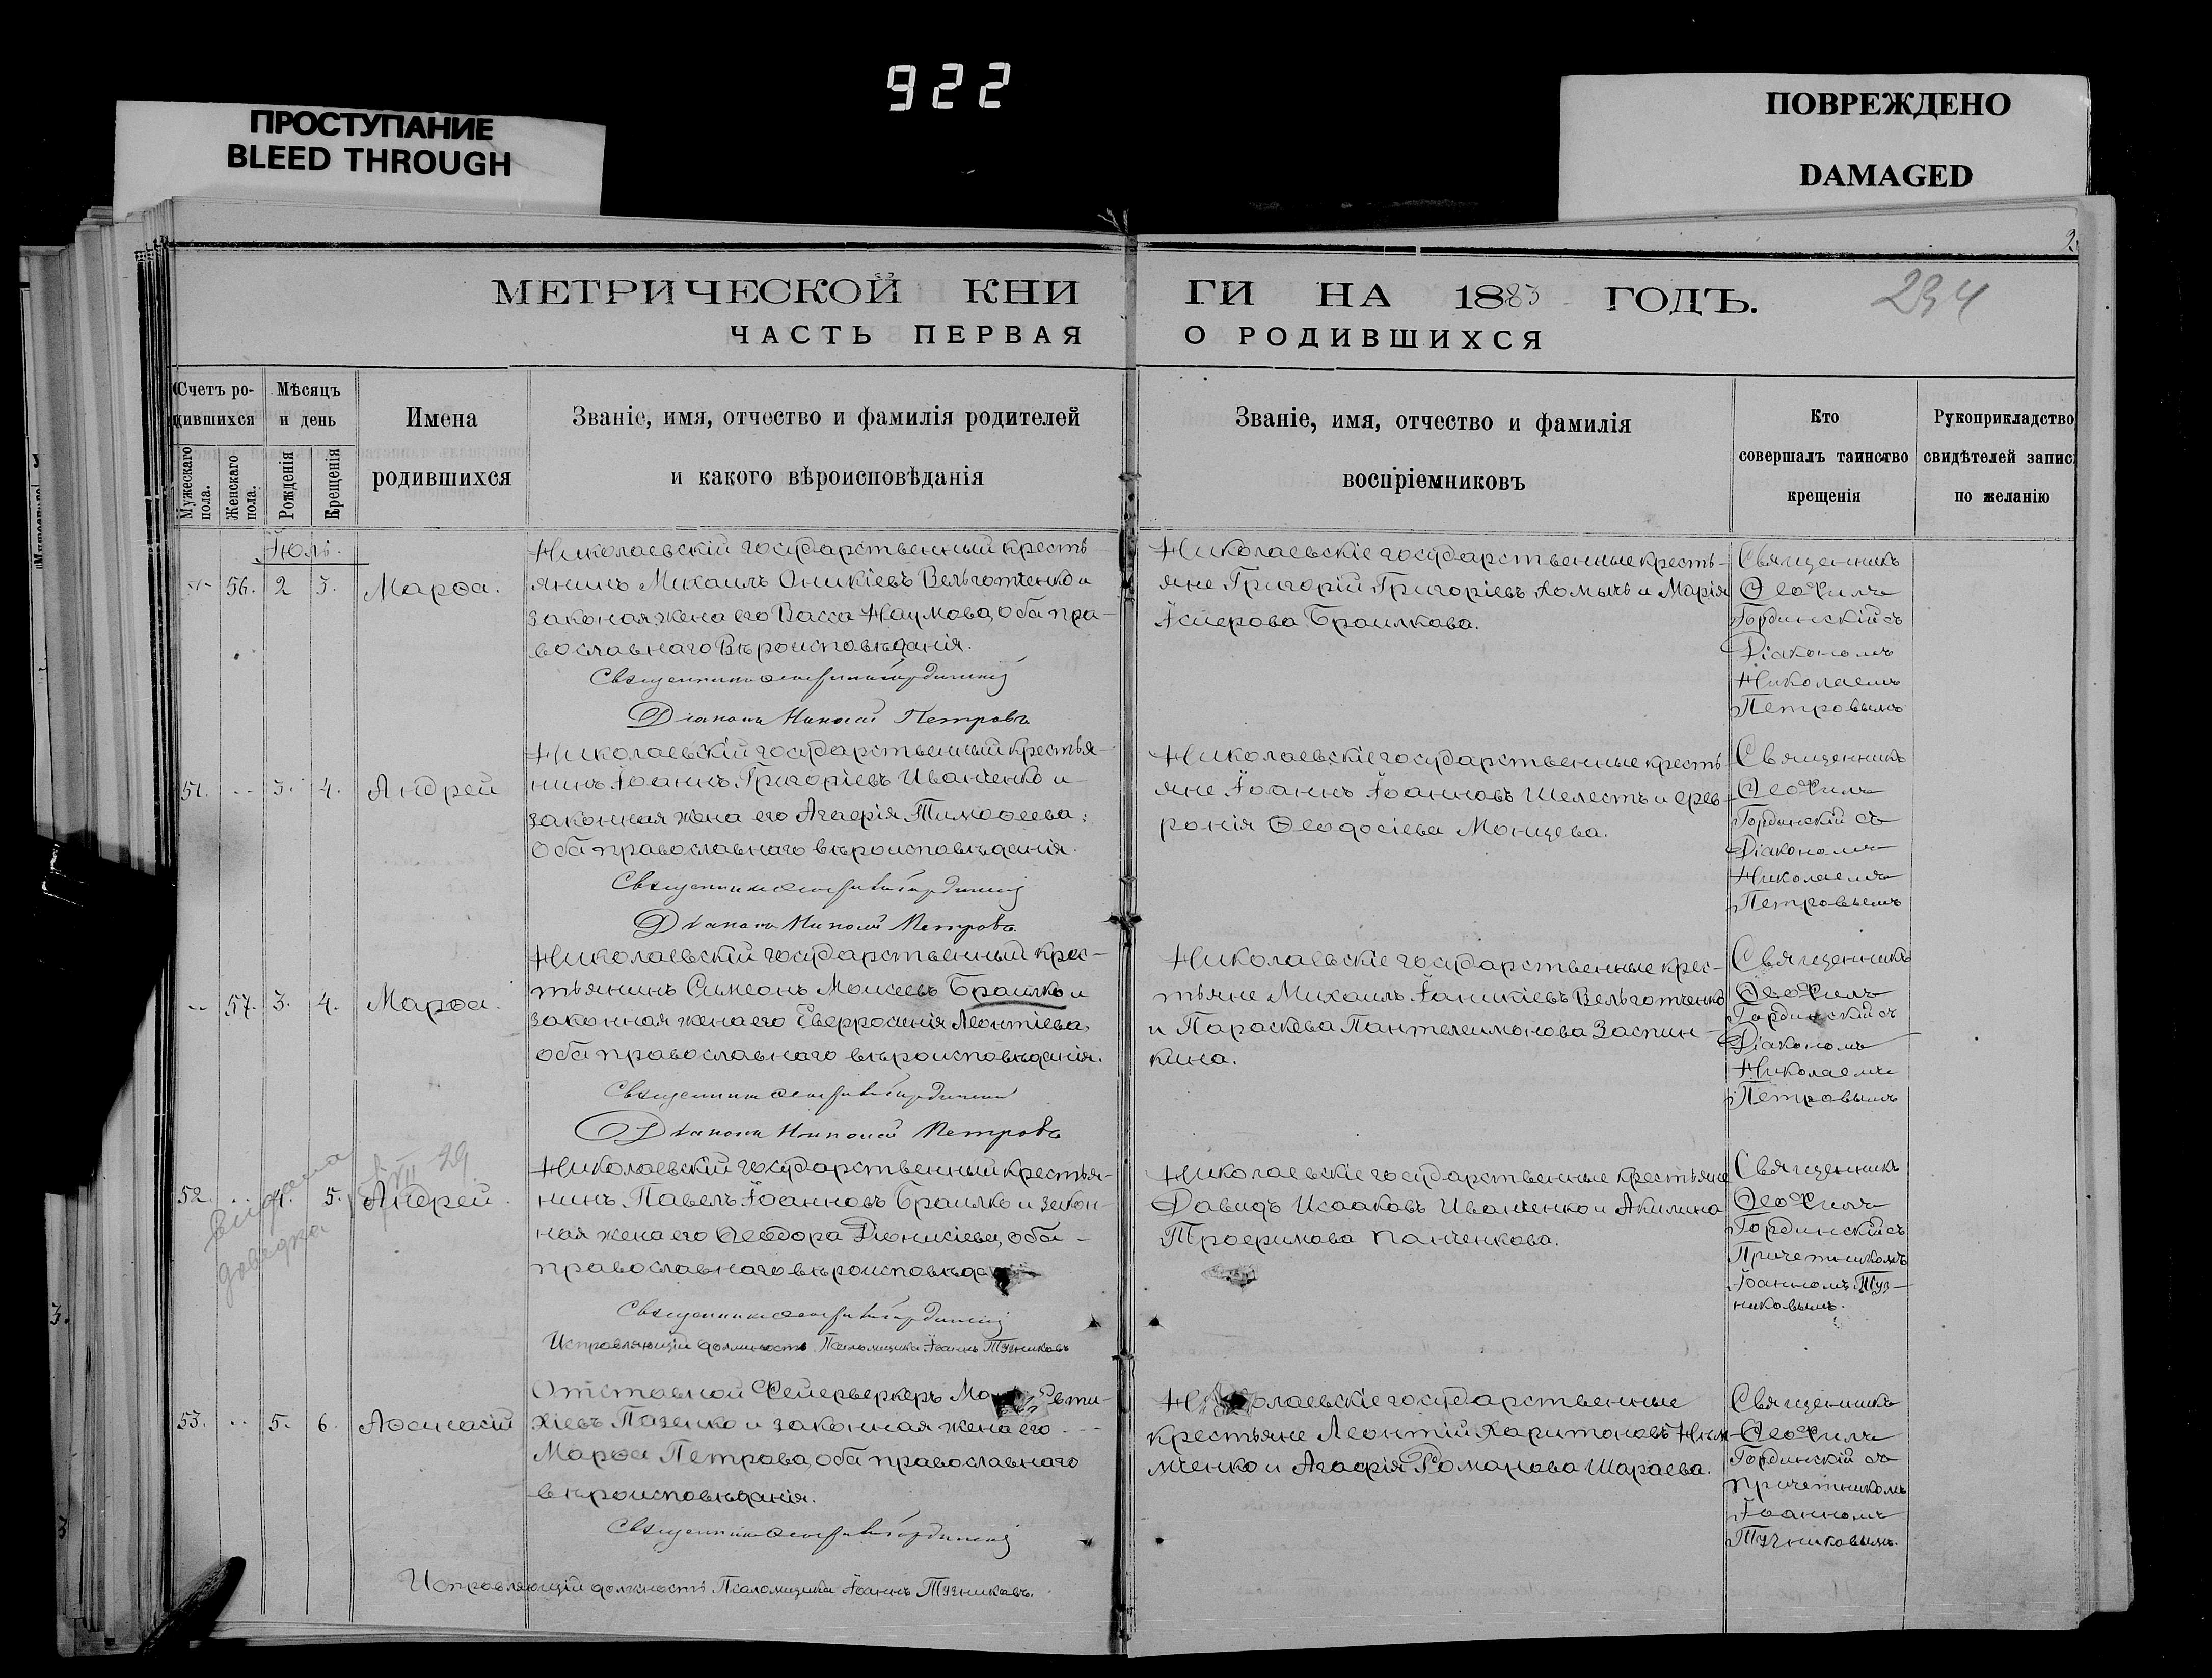 922
ПРОСТУПАНИЕ
BLEED THROUGH
ПОВРЕЖДЕНО
DAMAGED
МЕТРИЧЕСКОЙ КНИ ГИ НА 1883 ГОДЪ.
234
ЧАСТЬ ПЕРВАЯ О РОДИВШИХСЯ
Счетъ ро-
дившихся
Мужескаго пола.
Женскаго пола.
Мѣсяцъ
и день
Рожденія
Крещенія
Имена
родившихся
Званіе, имя, отчество и фамилія родителей
и какого вѣроисповѣданія
Званіе, имя, отчество и фамилія
воспріемниковъ
Кто
совершалъ таинство
крещенія
Рукоприкладство
свидѣтелей запис
по желанію
Іюль.
56. 2 3. Марѳа.
Николаевскій государственный кресть-
янинъ Михаилъ Оникіевъ Вельготченко и
законая жена его Васса Наумова, оба пра-
вославнаго Вѣроисповѣданія.
Священникъ Ѳеофилъ Гординскій
Діаконъ Николай Петровъ
Николаевскіе государственные кресть-
яне Григорій Григоріевъ Хомычъ и Марія
Браилкова.
Священникъ
Ѳеофилъ
Гординскій съ
Діакономъ
Николаемъ
Петровымъ
51. -- 3. 4. Андрей
Николаевскій государственный крестья-
нинъ Іоаннъ Григоріевъ Иванченко и
законная жена его Агафія Тимоѳеева;
Оба православнаго вѣроисповѣданія.
Священникъ Ѳеофилъ Гординскій
Діаконъ Николай Петровъ
Николаевскіе государственные кресть-
яне Іоаннъ Іоанновъ Шелестъ и Фев-
ронія Ѳеодосіева Монцева.
Священникъ
Ѳеофилъ
Гординскій съ
Діакономъ
Николаемъ
Петровымъ
-- 57. 3. 4. Марѳа.
Николаевскій государственный крес-
тьянинъ Симеонъ Моисеевъ Браилко и
законная жена его Евфросинія Леонтіева,
оба православнаго вѣроисповѣданія.
Священникъ Ѳеофилъ Гординскій
Діаконъ Николай Петровъ
Николаевскіе государственные крес-
тьяне Михаилъ Іаникіевъ Вельготченко
и Параскева Пантелеимонова Заспин-
кина.
Священникъ
Ѳеофилъ
Гординскій съ
Діакономъ
Николаемъ
Петровымъ
52. -- 4. 5. Андрей
довідка
29
Николаевскій государственный крестья-
нинъ Павелъ Іоанновъ Браилко и закон-
ная жена его Ѳеодора Діонисіева, оба
православнаго вѣроисповѣда
Священникъ Ѳеофилъ Гординскій
Исправляющій должность Псаломщика Іоаннъ Тузниковъ
Николаевскіе государственные крестьяне
Давидъ Исааковъ Иванченко и Акилина
Трофимова Панченкова.
Священникъ
Ѳеофилъ
Гординскій съ
Причетникомъ
Іоанномъ Туз-
никовымъ.
53. -- 5. 6. Аѳанасій
Отставной Фейерверкеръ Евти-
хіевъ Пазенко и законная жена его
Марѳа Петрова, оба православнаго
вѣроисповѣданія.
Священникъ Ѳеофилъ Гординскій
Исправляющій должность Псаломщика Іоаннъ Тузниковъ.
Николаевскіе государственные
крестьяне Леонтій Харитоновъ
и Агафія Романова Шараева.
Священникъ
Ѳеофилъ
Гординскій съ
причетникомъ
Іоанномъ
Тузниковымъ.